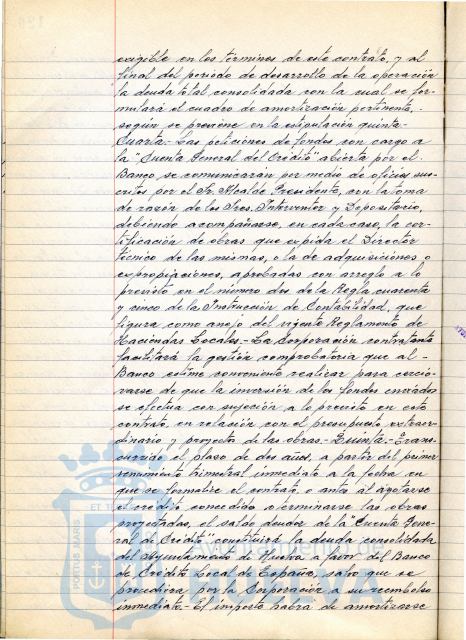 exigible en los términos de este contrato, y al
final del periodo de desarrollo de la operación
la deuda total consolidada con la cual se for-
mulará el cuadro de amortización pertinente, -
según se previene en la estipulación quinta.-
Cuarta.- Las peticiones de fondos con cargo a
la "Cuenta General del Crédito" abierta por el
Banco, se comunicarán por medio de oficios sus-
critos por el Sr. Alcalde Presidente, con la toma
de razón de los Sres. Interventor y Depositario,
debiendo acompañarse, en cada caso, la cer-
tificación de obras que expida el Director
técnico de las mismas, o la de adquisiciones o
expropiaciones, aprobadas con arreglo a lo
previsto en el número dos de la Regla cuarenta
y cinco de la Instrucción de Contabilidad, que
figura como anejo del vigente Reglamento de
Haciendas Locales.- La Corporación contratante
facilitará la gestión comprobatoria que al -
Banco estime conveniente realizar para cercio-
rarse de que la inversión de los fondos enviados
se efectua con sujeción a lo previsto en este
contrato, en relación con el presupuesto extraor-
dinario y proyecto de las obras.- Quinta.- Trans-
currido el plazo de dos años, a partir del primer
vencimiento trimestral inmediato a la fecha en
que se formalice el contrato, o antes al agotarse
el crédito concedido o terminarse las obras
proyectadas, el saldo deudor de la "Cuenta Gene-
ral de Crédito" constituirá la deuda consolidada
del Ayuntamiento de Huelva a favor del Banco
de Crédito Local de España, salvo que se
procediera por la Corporación a su reembolso
inmediato.- El importe habrá de amortizarse
PORTUS MARIS
ET TE